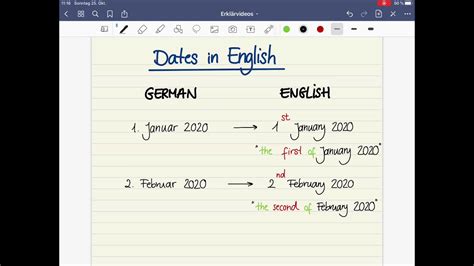 11:16 Sonntag 25. Okt.
90 %
Erklärvideos
Dates in English
GERMAN ENGLISH
1. Januar 2020 → 1st January 2020
"the first of January 2020"
2. Februar 2020 → 2nd February 2020
"the second of February 2020"